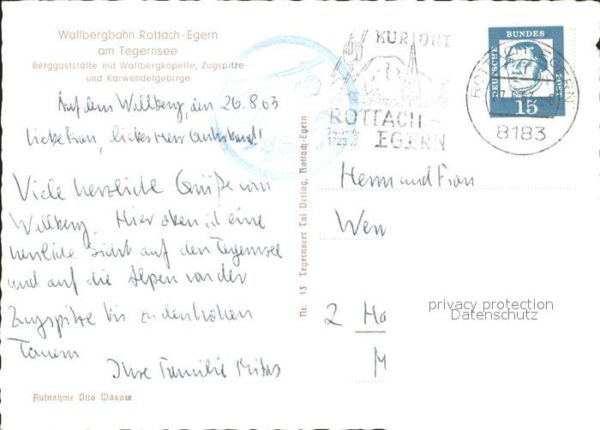 Wallbergbahn Rottach-Egern
am Tegernsee
Berggaststätte mit Wallbergkapelle, Zugspitze
und Karwendelgebirge
Auf dem Wallberg, den 26.8.63
Liebe Frau, lieber Herr
Viele herzliche Grüße vom
Wallberg. Hier oben ist eine
herrliche Sicht auf den Tegernsee
und auf die Alpen von der
Zugspitze bis zu den hohen
Tauern
Ihre Familie
Aufnahme Otto Wasow
Nr. 13 Tegernseer Tal Verlag, Rottach-Egern
KURORT
ROTTACH-
EGERN
ROTTACH-EGERN
8183
DEUTSCHE BUNDESPOST
15
Herrn und Frau
Wen
2 Ha
M
privacy protection
Datenschutz